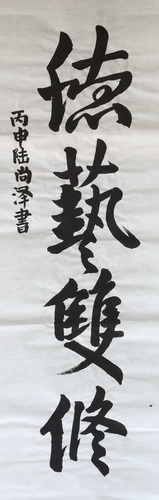 德藝雙修
丙申陆尚泽書